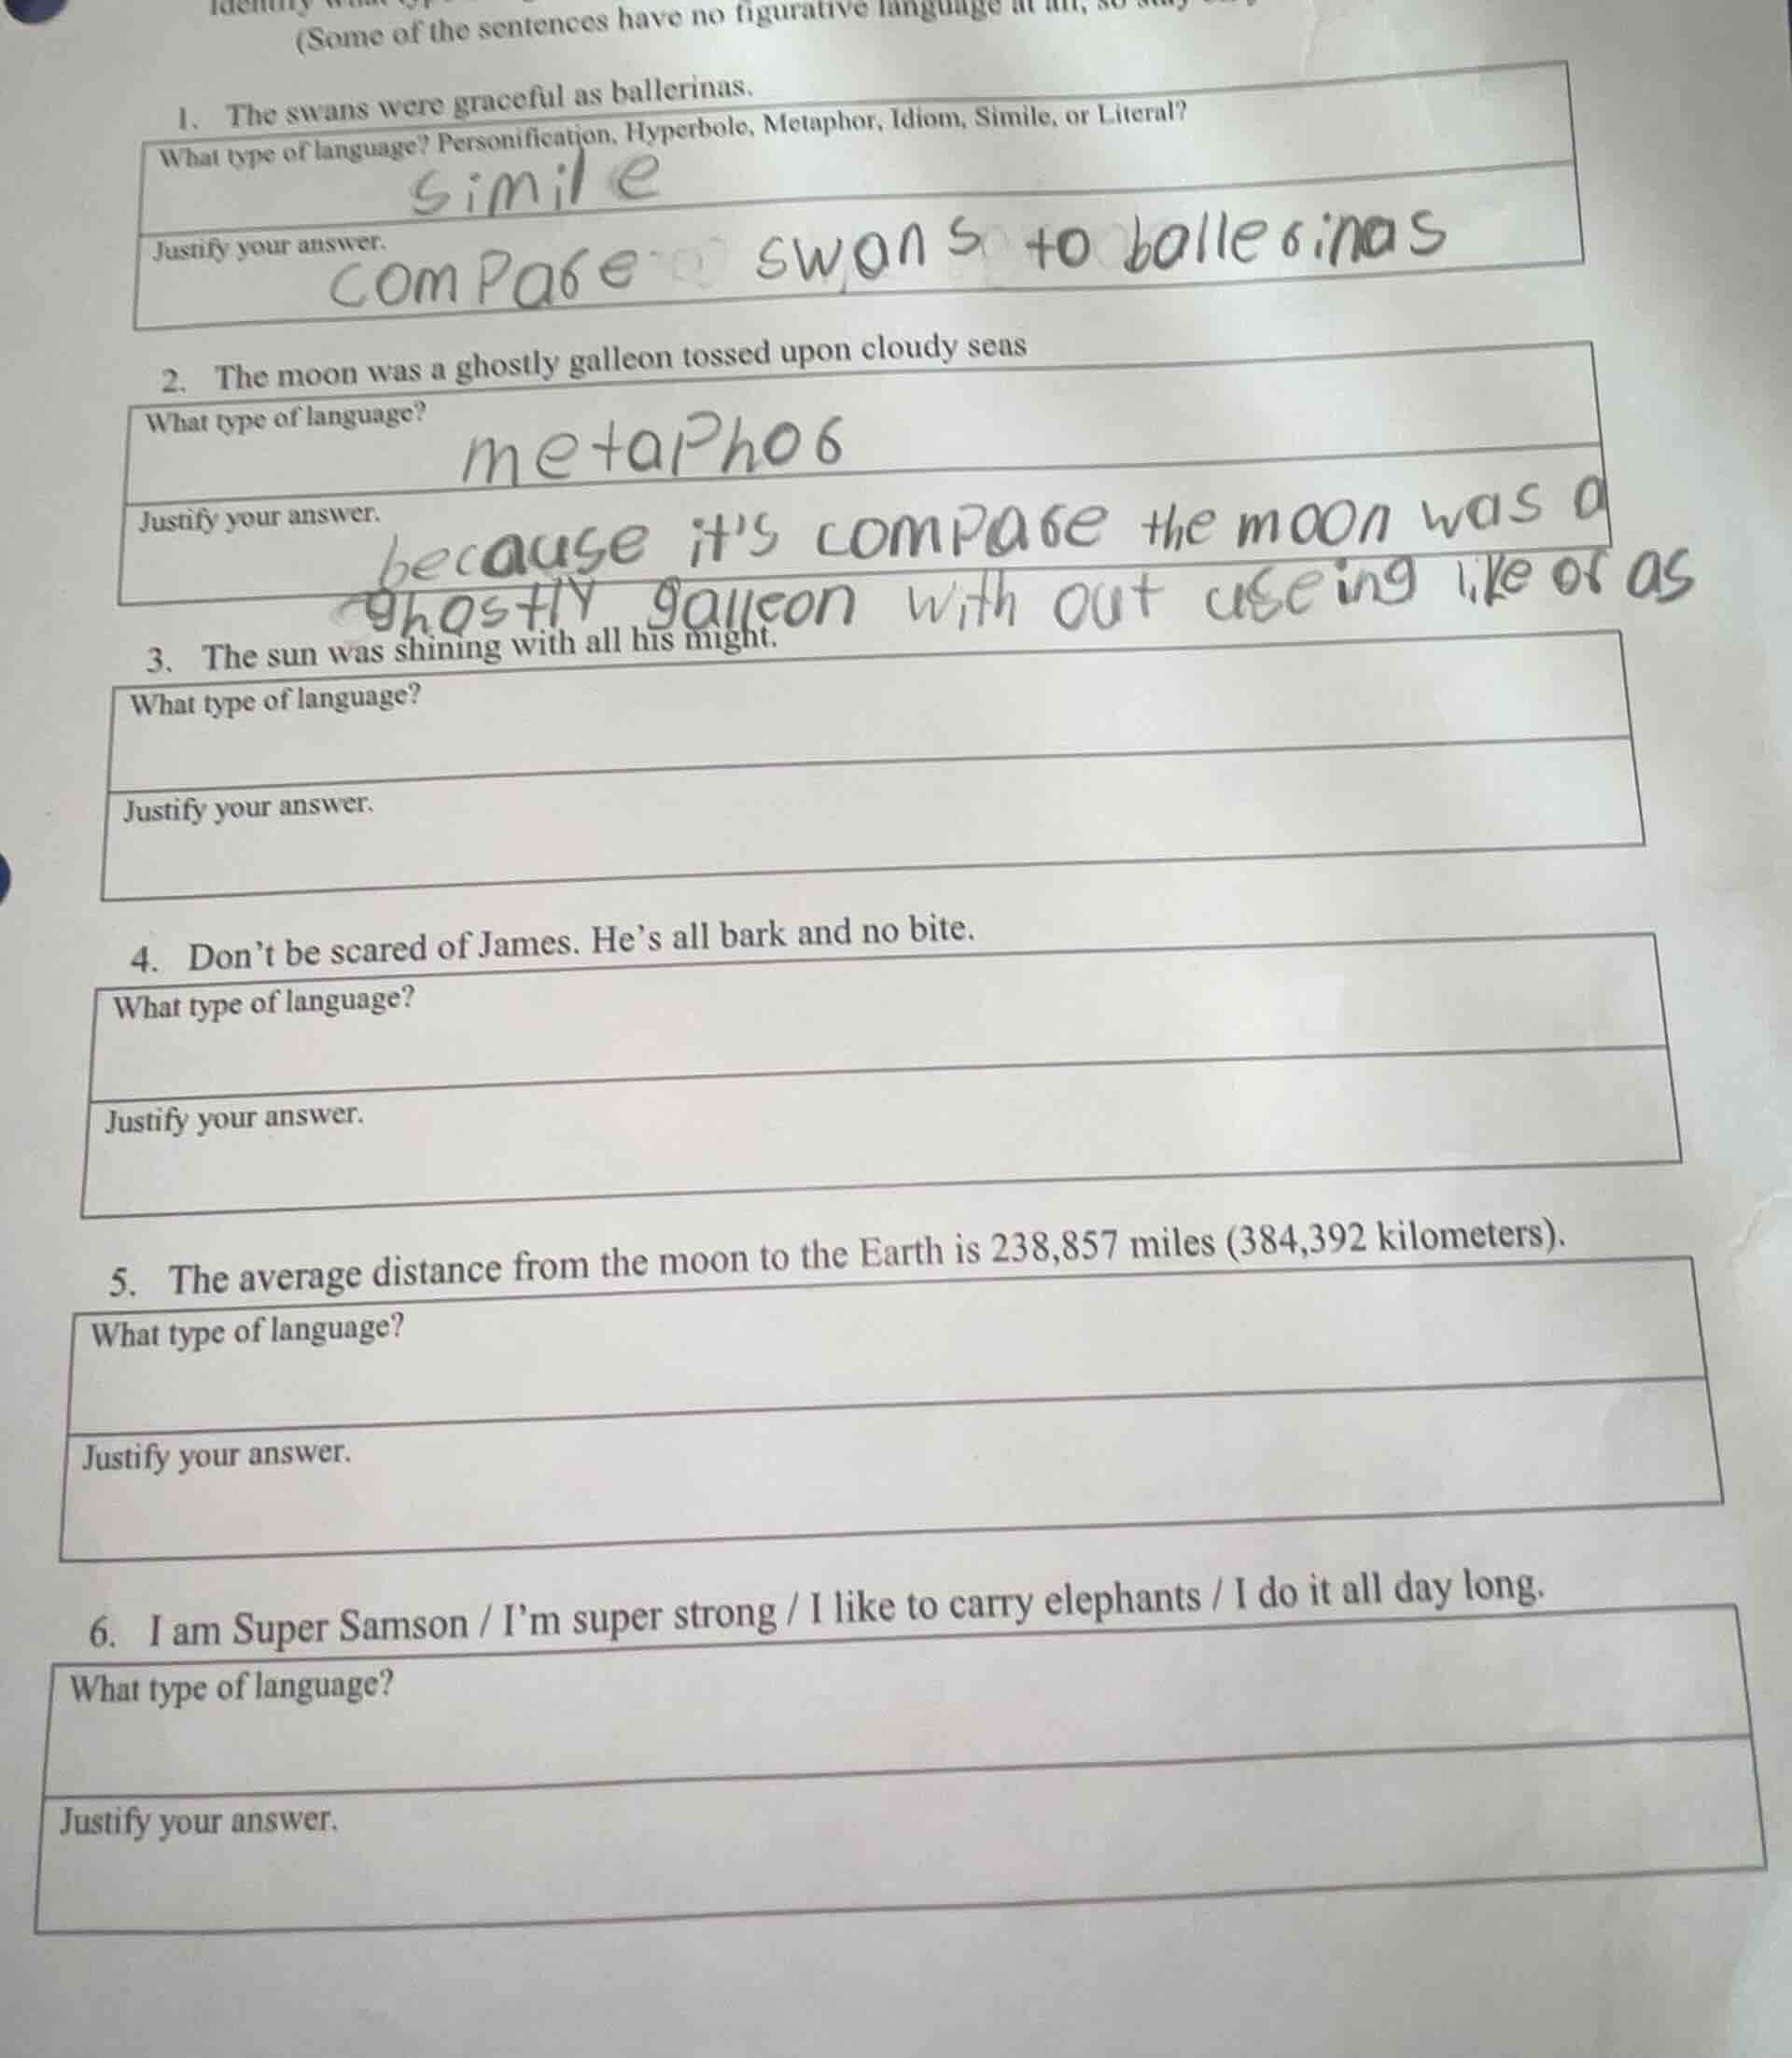 (Some of the sentences have no figurative language at all, so
1. The swans were graceful as ballerinas.
What type of language? Personification, Hyperbole, Metaphor, Idiom, Simile, or Literal?
simile
Justify your answer.
compare swans to ballerinas
2. The moon was a ghostly galleon tossed upon cloudy seas
What type of language?
metaphor
Justify your answer.
because it's compare the moon was a
ghostly galleon with out useing like or as
3. The sun was shining with all his might.
What type of language?
Justify your answer.
4. Don't be scared of James. He's all bark and no bite.
What type of language?
Justify your answer.
5. The average distance from the moon to the Earth is 238,857 miles (384,392 kilometers).
What type of language?
Justify your answer.
6. I am Super Samson / I'm super strong / I like to carry elephants / I do it all day long.
What type of language?
Justify your answer.